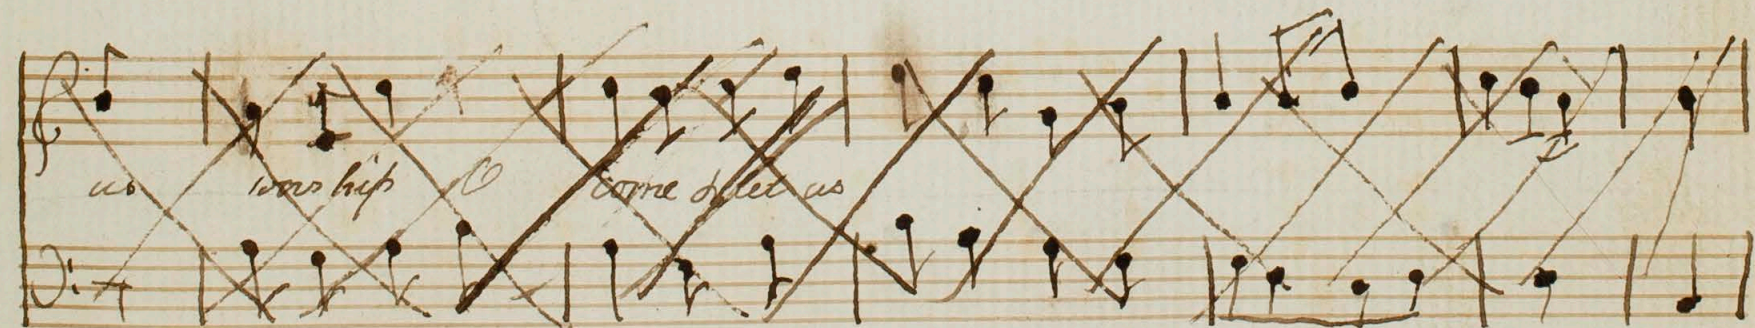 us worship O come & let us